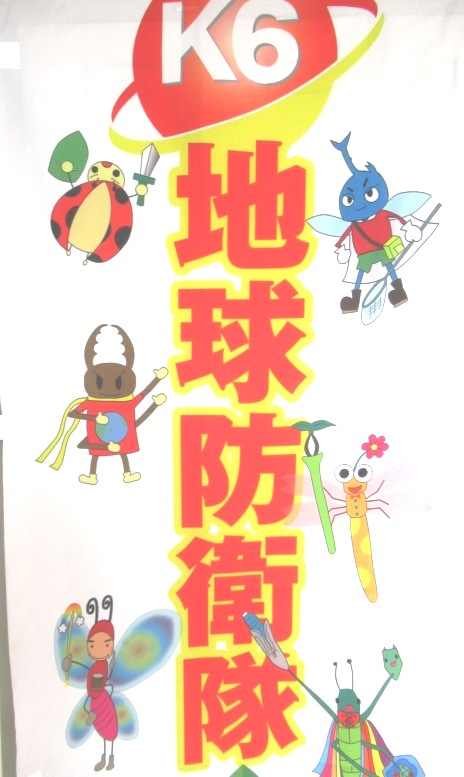 K6
地球防衛隊